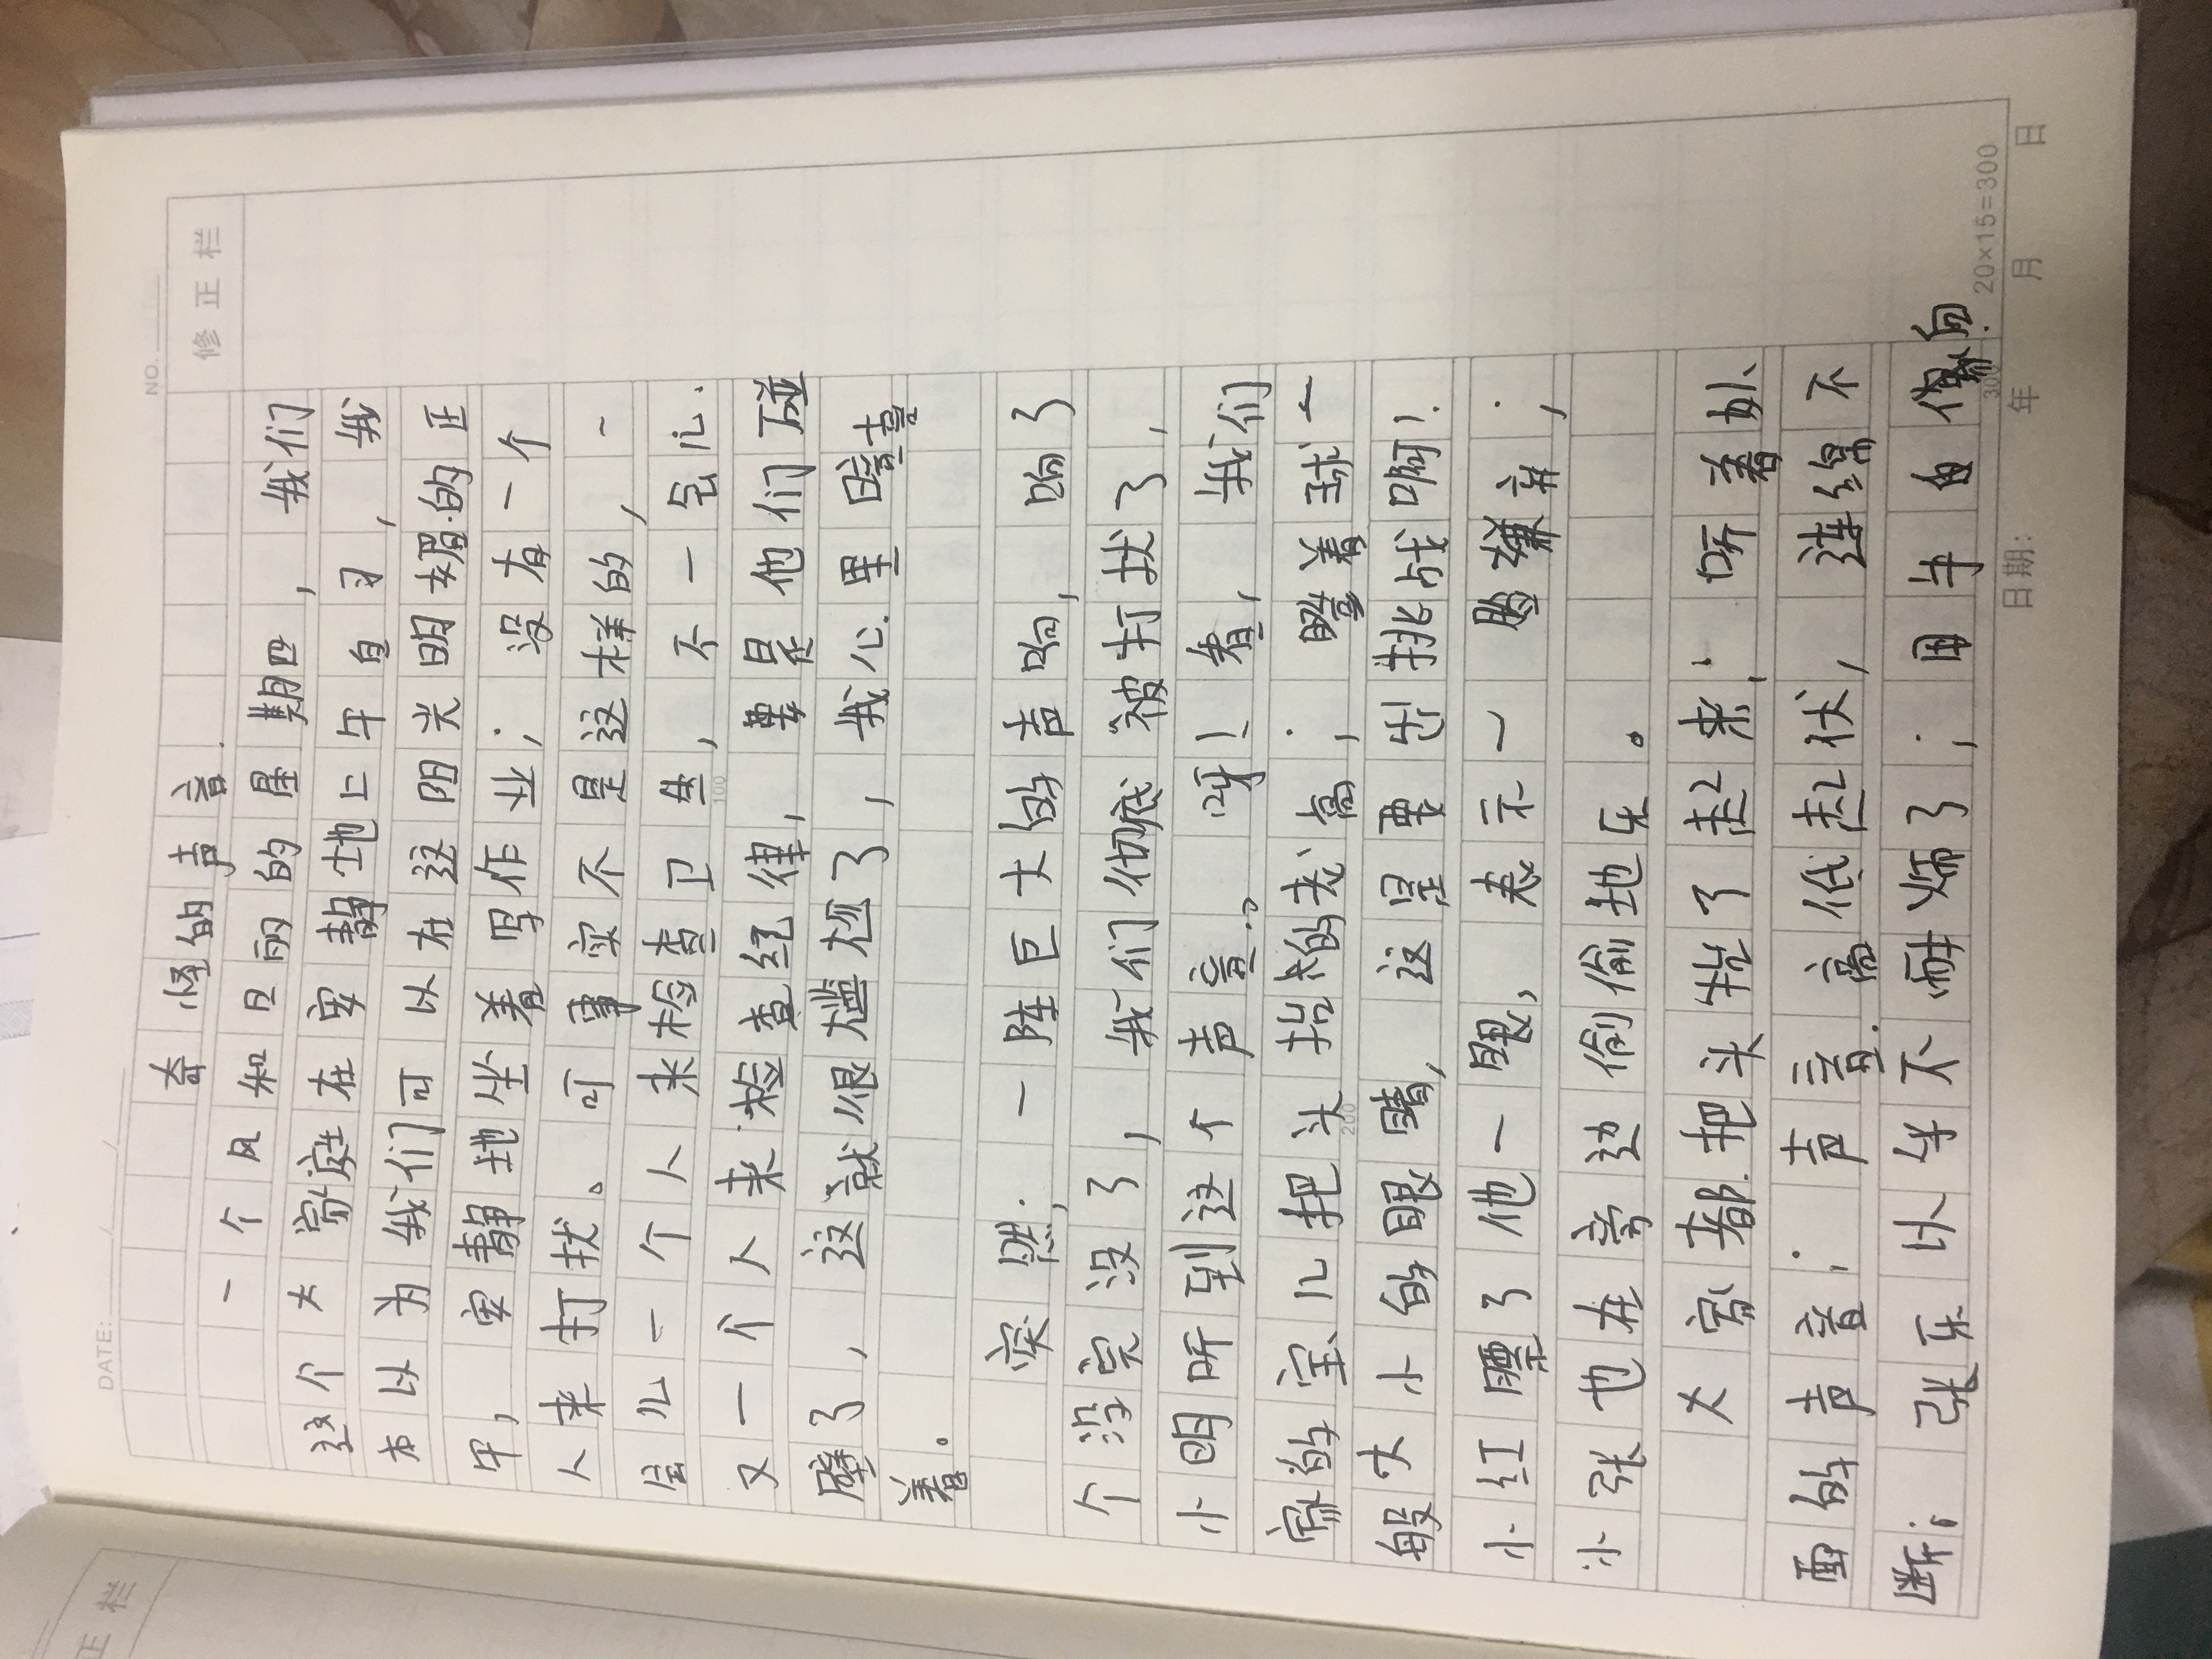 DATE: / /
NO.
修正栏
奇怪的声音
一个风和日丽的星期四，我们
这个大家庭在安静地上午自习，我
本以为我们可以在这阳光明媚的正
午，安静地坐着写作业；没有一个
人来打扰。可事实不是这样的，一
会儿一个人来检查卫生，不一会儿
又一个人来检查纪律，要是他们碰
壁了，这就很尴尬了，我心里暗喜
着。
突然，一阵巨大的声响，响了
个没完没了，我们彻底被打扰了，
小明听到这个声音..。呀！看，我们
家的宝儿把头抬的老高；瞪着球一
般大小的眼睛，这是要出挑战啊！
小红瞟了他一眼，表示一脸嫌弃；
小张也在旁边偷偷地乐。
大家都把头抬了起来；听着外
面的声音；声音高低起伏，连绵不
断；张乐以乍不耐烦了；用手自做向
100
200
300
20×15=300
日期： 年 月 日
正栏